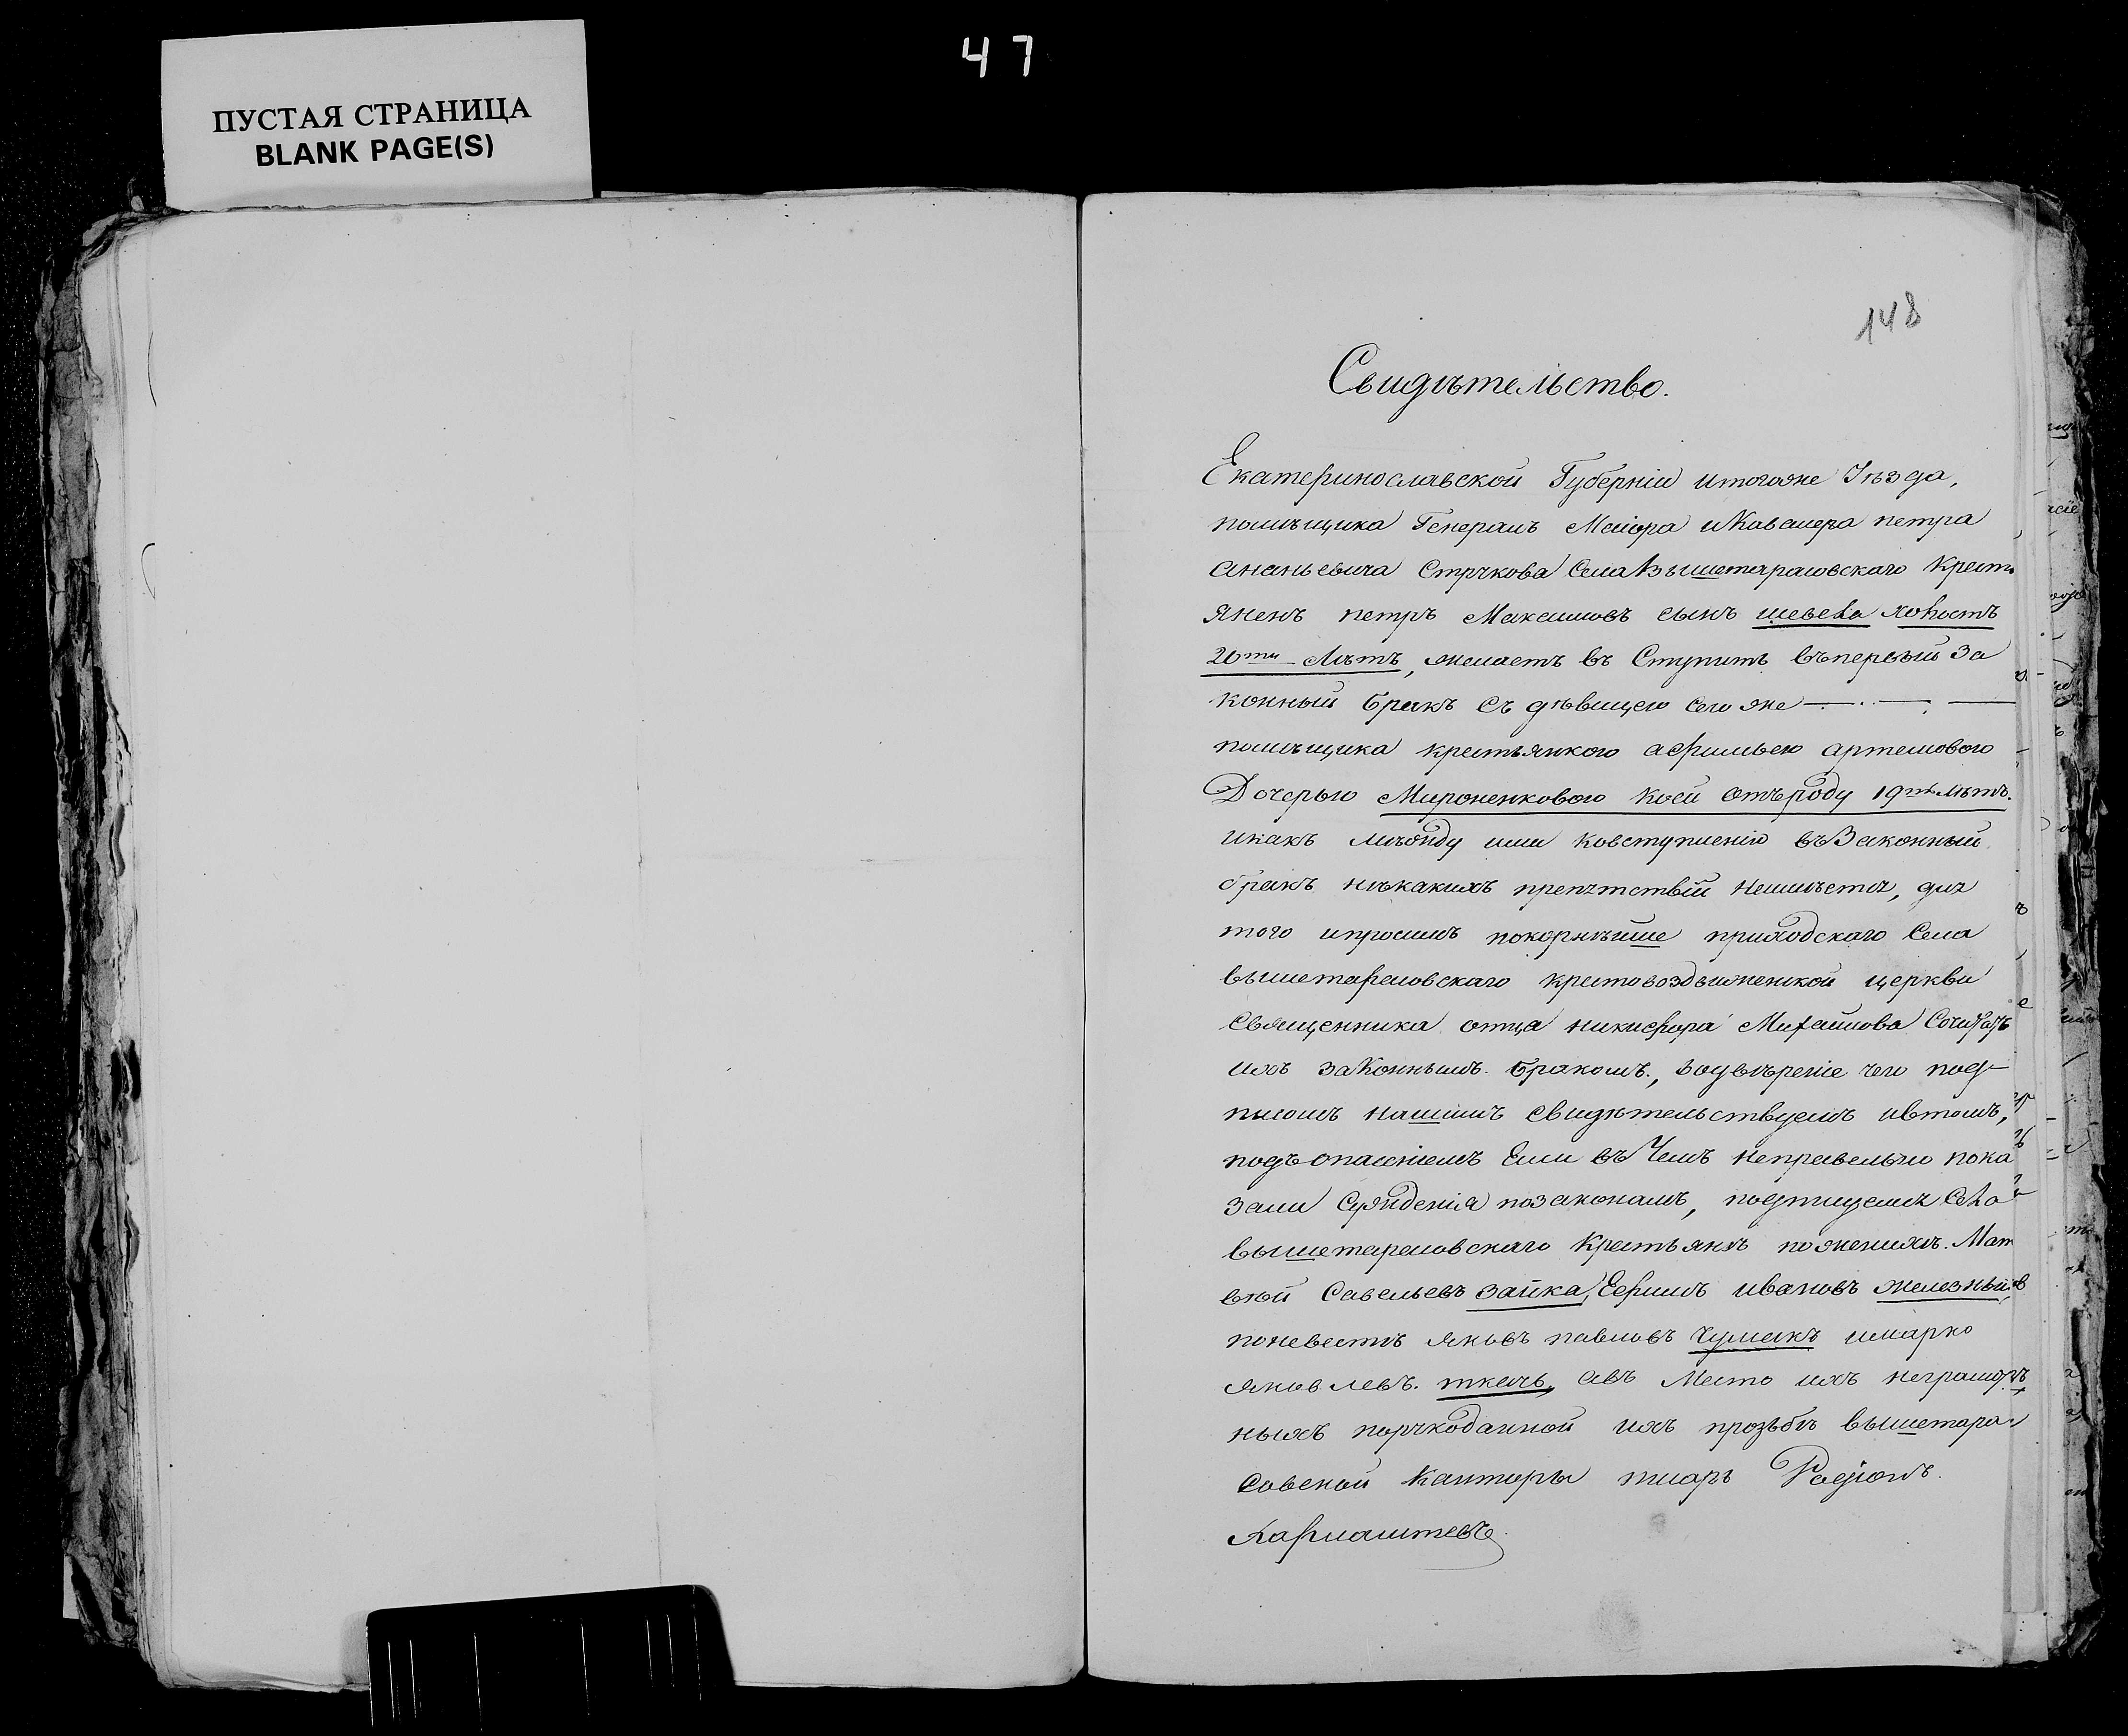 47
ПУСТАЯ СТРАНИЦА
BLANK PAGE(S)
148
Свидѣтельство.
Екатеринославской Губерніи итогоже Уѣзда,
помѣщика Генералъ Маіора иКавалера петра
ананьевича Стрѣкова Села вышетарасовскаго Кресть
Яненъ петръ Максимовъ сынъ шевека холостъ
20ти Лѣтъ, желаетъ въ Ступить въпервый За
конный бракъ Съ дѣвицею Сего же
помѣщика крестьянкою афимьею артемовою
Дочерью Мироненковою Коей отъроду 19ть лѣтъ.
икакъ мѣжду ими ковступленію въЗаконный
бракъ нѣкакихъ препятствій неимѣется, для
того ипросимъ покорнѣише приходскаго Села
вышетарасовскаго крестовоздвиженской церкви
Священника отца никифора Михайлова Сочитать
ихъ заКоннымъ бракомъ, воувѣреніе чего под-
писомъ нашимъ свидѣтельствуемъ ивтомъ,
подъопасеніемъ Если въ Чемъ неправельно пока
зали Суждения позаконамъ, подпишемся Села
вышетарасовскаго Крестьянъ поженихъ. Мат
вѣй Савельевъ зайка, Ефимъ ивановъ железный
поневестѣ яковъ павловъ чумакъ имарко
яковлевъ. ткачь, авъ Место ихъ неграмот
ныхъ порукоданной ихъ прозьбѣ вышетара
совской Канторы писарь Родіонъ